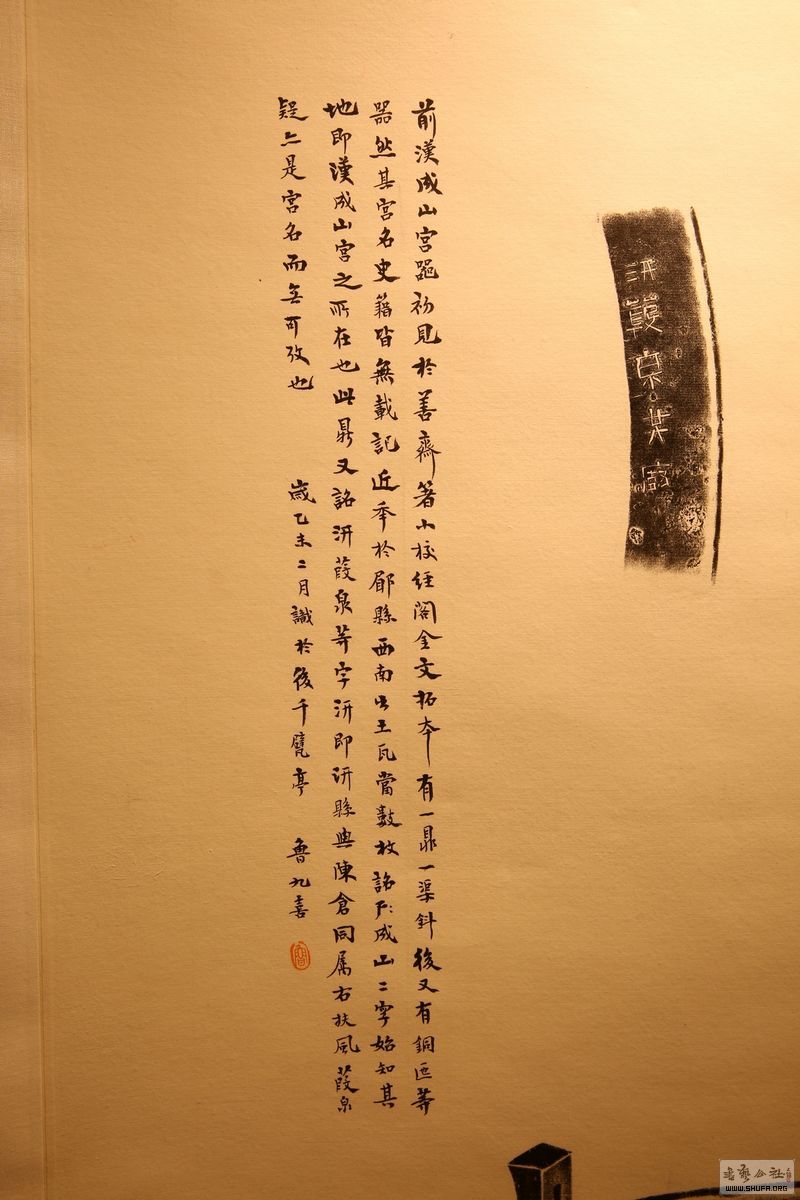 汧葭泉
前漢成山宮器初見於善齋著小校經閣金文拓本有一鼎一渠鈄後又有銅匜等
器然其宮名史籍皆無載記近秊於郿縣西南出土瓦當數枚銘成山二字始知其
地即漢成山宮之所在也此鼎又銘汧葭泉等字汧即汧縣與陳倉同属右扶風葭泉
疑亦是宮名而無可攷也 歲乙未二月識於後千甓亭 魯九喜
书艺公社
WWW.SHUFA.ORG